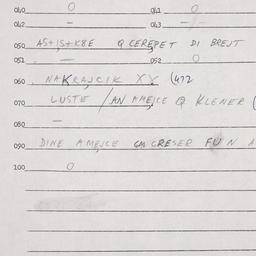 040 0 041 0
042 - 043 -/-
050 AS+IS+K8E Q CEREPET DI BREJT
051 — 052 0
060 NAKRAJCIK XY (472
070 LUSTE /AN AMEJCE Q KLENER (
080 —
090 DINE AMEJCE GM GRESER FUN A
100 0